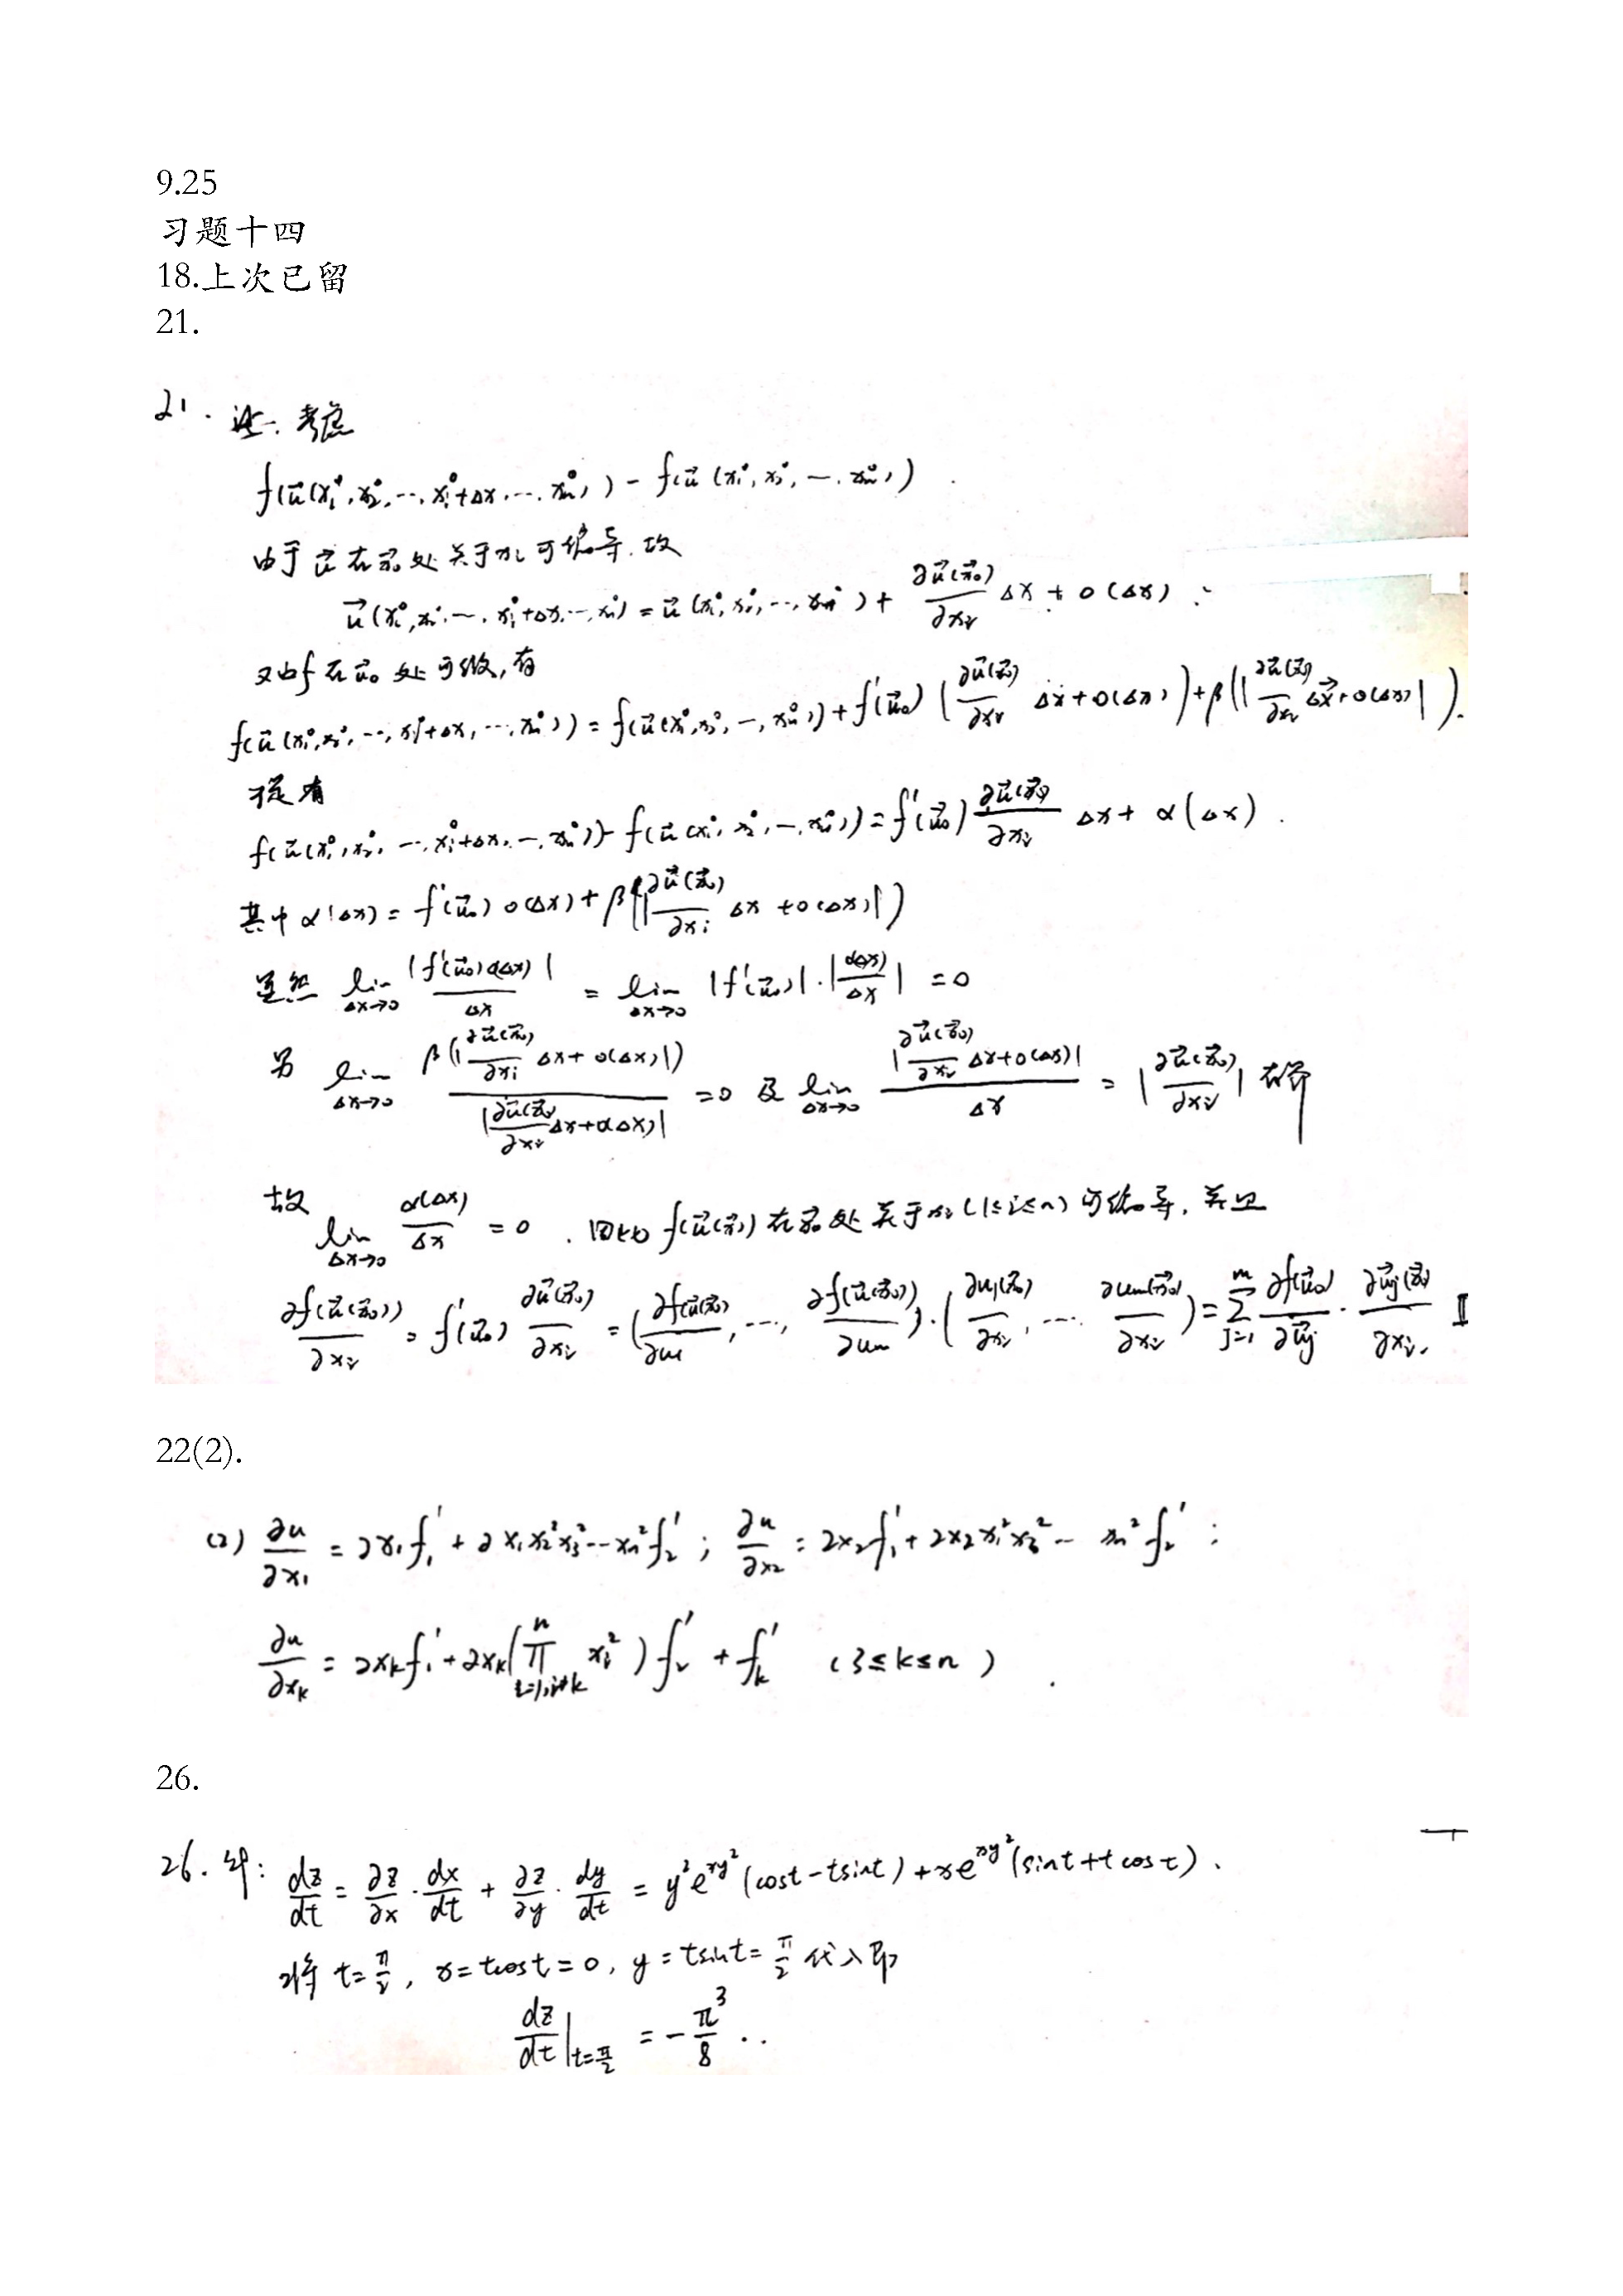 9.25
习题十四
18.上次已留
21.
21. 证: 考虑
f(u⃗(x₁⁰, x₂⁰, ⋯, xᵢ⁰+Δx, ⋯, xₙ⁰)) - f(u⃗(x₁⁰, x₂⁰, ⋯, xₙ⁰)).
由于 u⃗ 在 x⃗₀ 处关于 xᵢ 可偏导, 故
u⃗(x₁⁰, x₂⁰, ⋯, xᵢ⁰+Δx, ⋯, xₙ⁰) = u⃗(x₁⁰, x₂⁰, ⋯, xₙ⁰) + ∂u⃗(x⃗₀)/∂xᵢ Δx + o(Δx).
又由 f 在 u⃗₀ 处可微, 有
f(u⃗(x₁⁰, x₂⁰, ⋯, xᵢ⁰+Δx, ⋯, xₙ⁰)) = f(u⃗(x₁⁰, x₂⁰, ⋯, xₙ⁰)) + f'(u⃗₀)(∂u⃗(x⃗₀)/∂xᵢ Δx + o(Δx)) + β(|∂u⃗(x⃗₀)/∂xᵢ Δx + o(Δx)|).
有
f(u⃗(x₁⁰, x₂⁰, ⋯, xᵢ⁰+Δx, ⋯, xₙ⁰)) - f(u⃗(x₁⁰, x₂⁰, ⋯, xₙ⁰)) = f'(u⃗₀) ∂u⃗(x⃗₀)/∂xᵢ Δx + α(Δx).
其中 α(Δx) = f'(u⃗₀) o(Δx) + β(|∂u⃗(x⃗₀)/∂xᵢ Δx + o(Δx)|)
显然 lim_{Δx→0} |f'(u⃗₀) o(Δx)|/Δx = lim_{Δx→0} |f'(u⃗₀)|·|o(Δx)/Δx| = 0
另 lim_{Δx→0} β(|∂u⃗(x⃗₀)/∂xᵢ Δx + o(Δx)|)/|∂u⃗(x⃗₀)/∂xᵢ Δx + o(Δx)| = 0 及 lim_{Δx→0} |∂u⃗(x⃗₀)/∂xᵢ Δx + o(Δx)|/Δx = |∂u⃗(x⃗₀)/∂xᵢ| 有界
故 lim_{Δx→0} α(Δx)/Δx = 0. 因此 f(u⃗(x⃗)) 在 x⃗₀ 处关于 xᵢ (1≤i≤n) 可偏导, 并且
∂f(u⃗(x⃗₀))/∂xᵢ = f'(u⃗₀) ∂u⃗(x⃗₀)/∂xᵢ = (∂f(u⃗(x⃗₀))/∂u₁, ⋯, ∂f(u⃗(x⃗₀))/∂uₘ)·(∂u₁(x⃗₀)/∂xᵢ, ⋯, ∂uₘ(x⃗₀)/∂xᵢ) = Σ_{j=1}^{m} ∂f(u⃗₀)/∂u⃗ⱼ · ∂u⃗ⱼ(x⃗₀)/∂xᵢ.
22(2).
(2) ∂u/∂x₁ = 2x₁f₁' + 2x₁x₂²x₃²⋯xₙ²f₂' ; ∂u/∂x₂ = 2x₂f₁' + 2x₂x₁²x₃²⋯xₙ²f₂' ;
∂u/∂xₖ = 2xₖf₁' + 2xₖ(∏_{i=1,i≠k}^{n} xᵢ²)f₂' + fₖ' (3≤k≤n).
26.
26. 解: dz/dt = ∂z/∂x · dx/dt + ∂z/∂y · dy/dt = y²e^{xy²}(cost - tsint) + xe^{xy²}(sint + tcost).
将 t=π/2, x=tcost=0, y=tsint=π/2 代入即
dz/dt|_{t=π/2} = -π³/8.